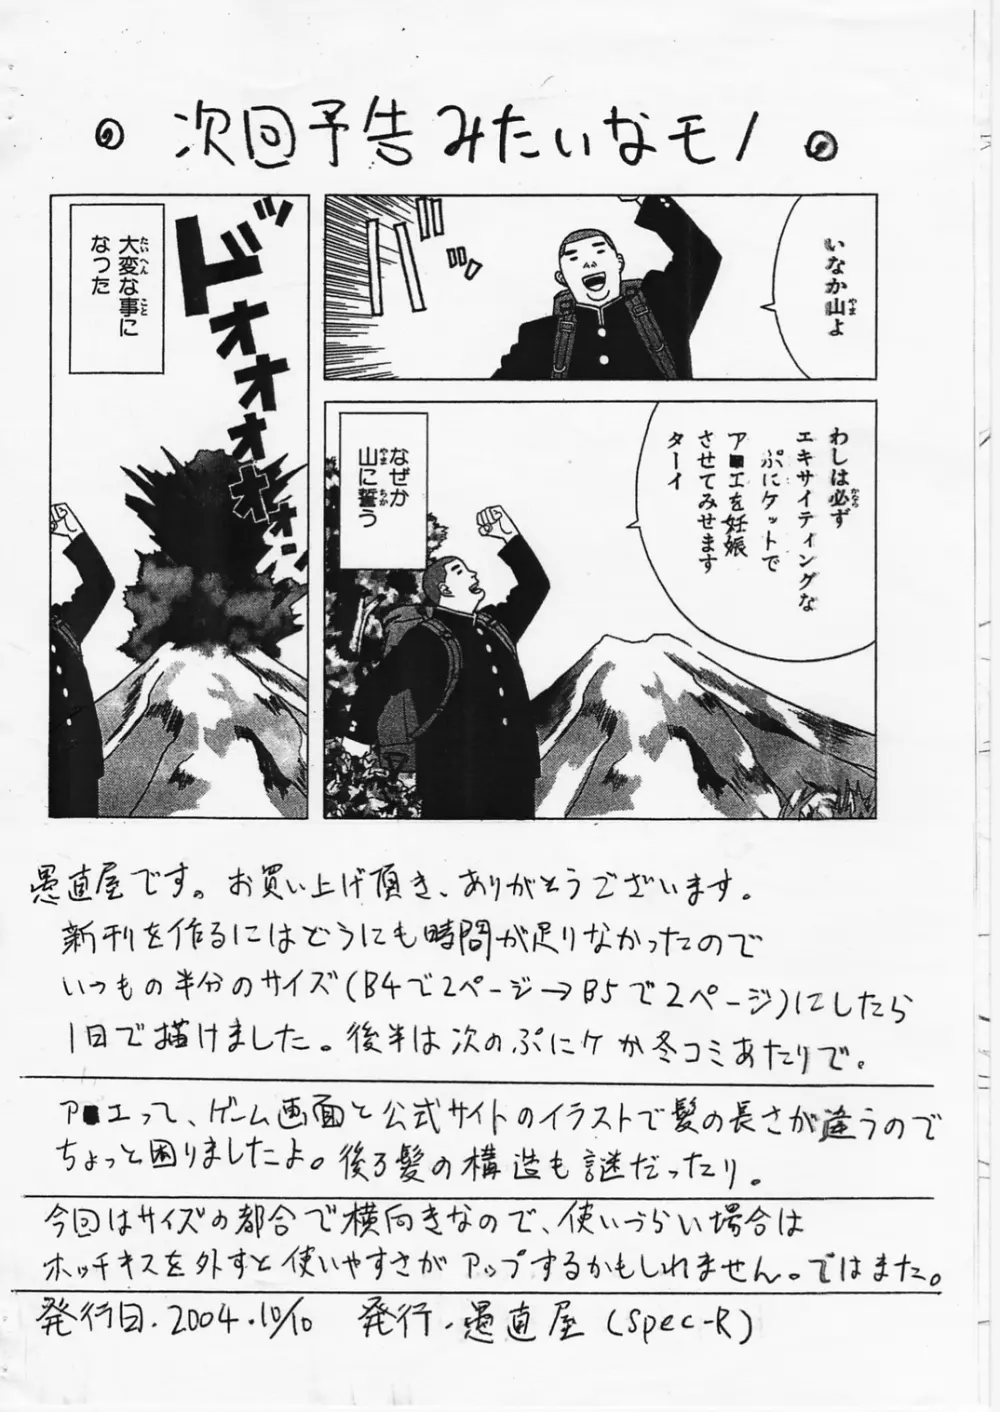 次回予告みたいなモノ
いなか山よ
バ
バッ
わしは必ず
エキサイティングな
ぷにケットで
ア■エを妊娠
させてみせます
ターイ
なぜか
山に誓う
ドオオオオオオンッ
大変な事に
なった
愚直屋です。お買い上げ頂き、ありがとうございます。
新刊を作るにはどうにも時間が足りなかったので
いつもの半分のサイズ(B4で2ページ→B5で2ページ)にしたら
1日で描けました。後半は次のぷにケか冬コミあたりで。
ア■エって、ゲーム画面と公式サイトのイラストで髪の長さが違うので
ちょっと困りましたよ。後ろ髪の構造も謎だったり。
今回はサイズの都合で横向きなので、使いづらい場合は
ホッチキスを外すと使いやすさがアップするかもしれません。ではまた。
発行日.2004.10/10 発行.愚直屋(Spec-R)